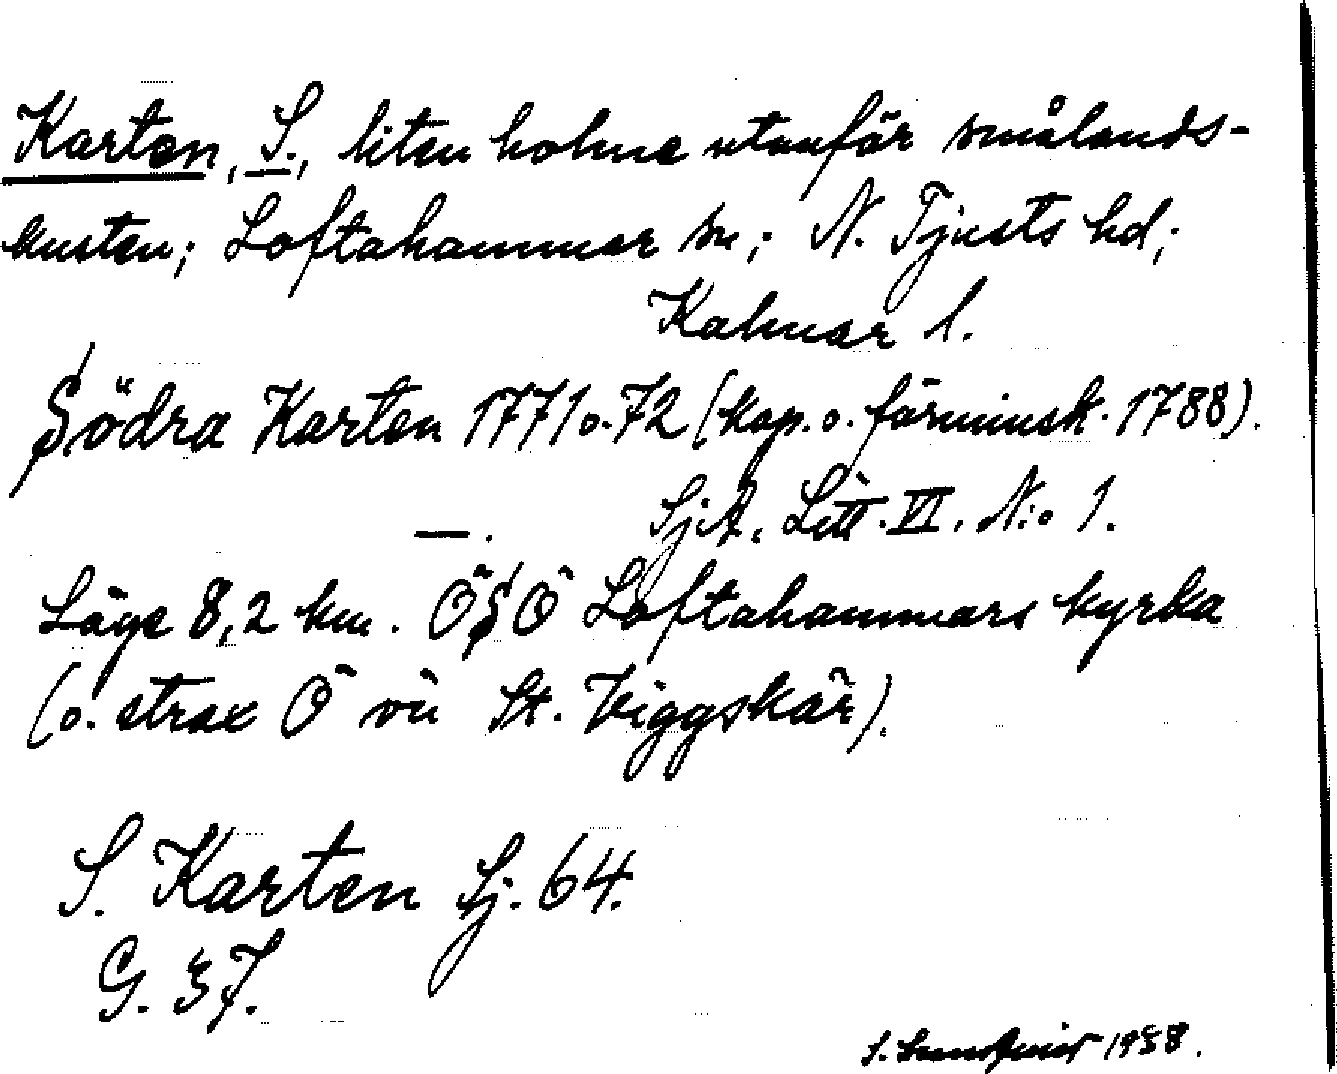 Karten, S., liten holme utanför smålands-
kusten; Loftahammar sn; N. Tjusts hd;
Kalmar l.
Södra Karten 1771 o. 72 (kop. o. förminsk. 1788).
SjA, Litt. VI. N:o 1.
—.
Läge 8,2 km. ÖSÖ Loftahammars kyrka
(o. strax Ö vü St. Viggskär).
S. Karten Sj. 64.
G. 37.
S. 1958.